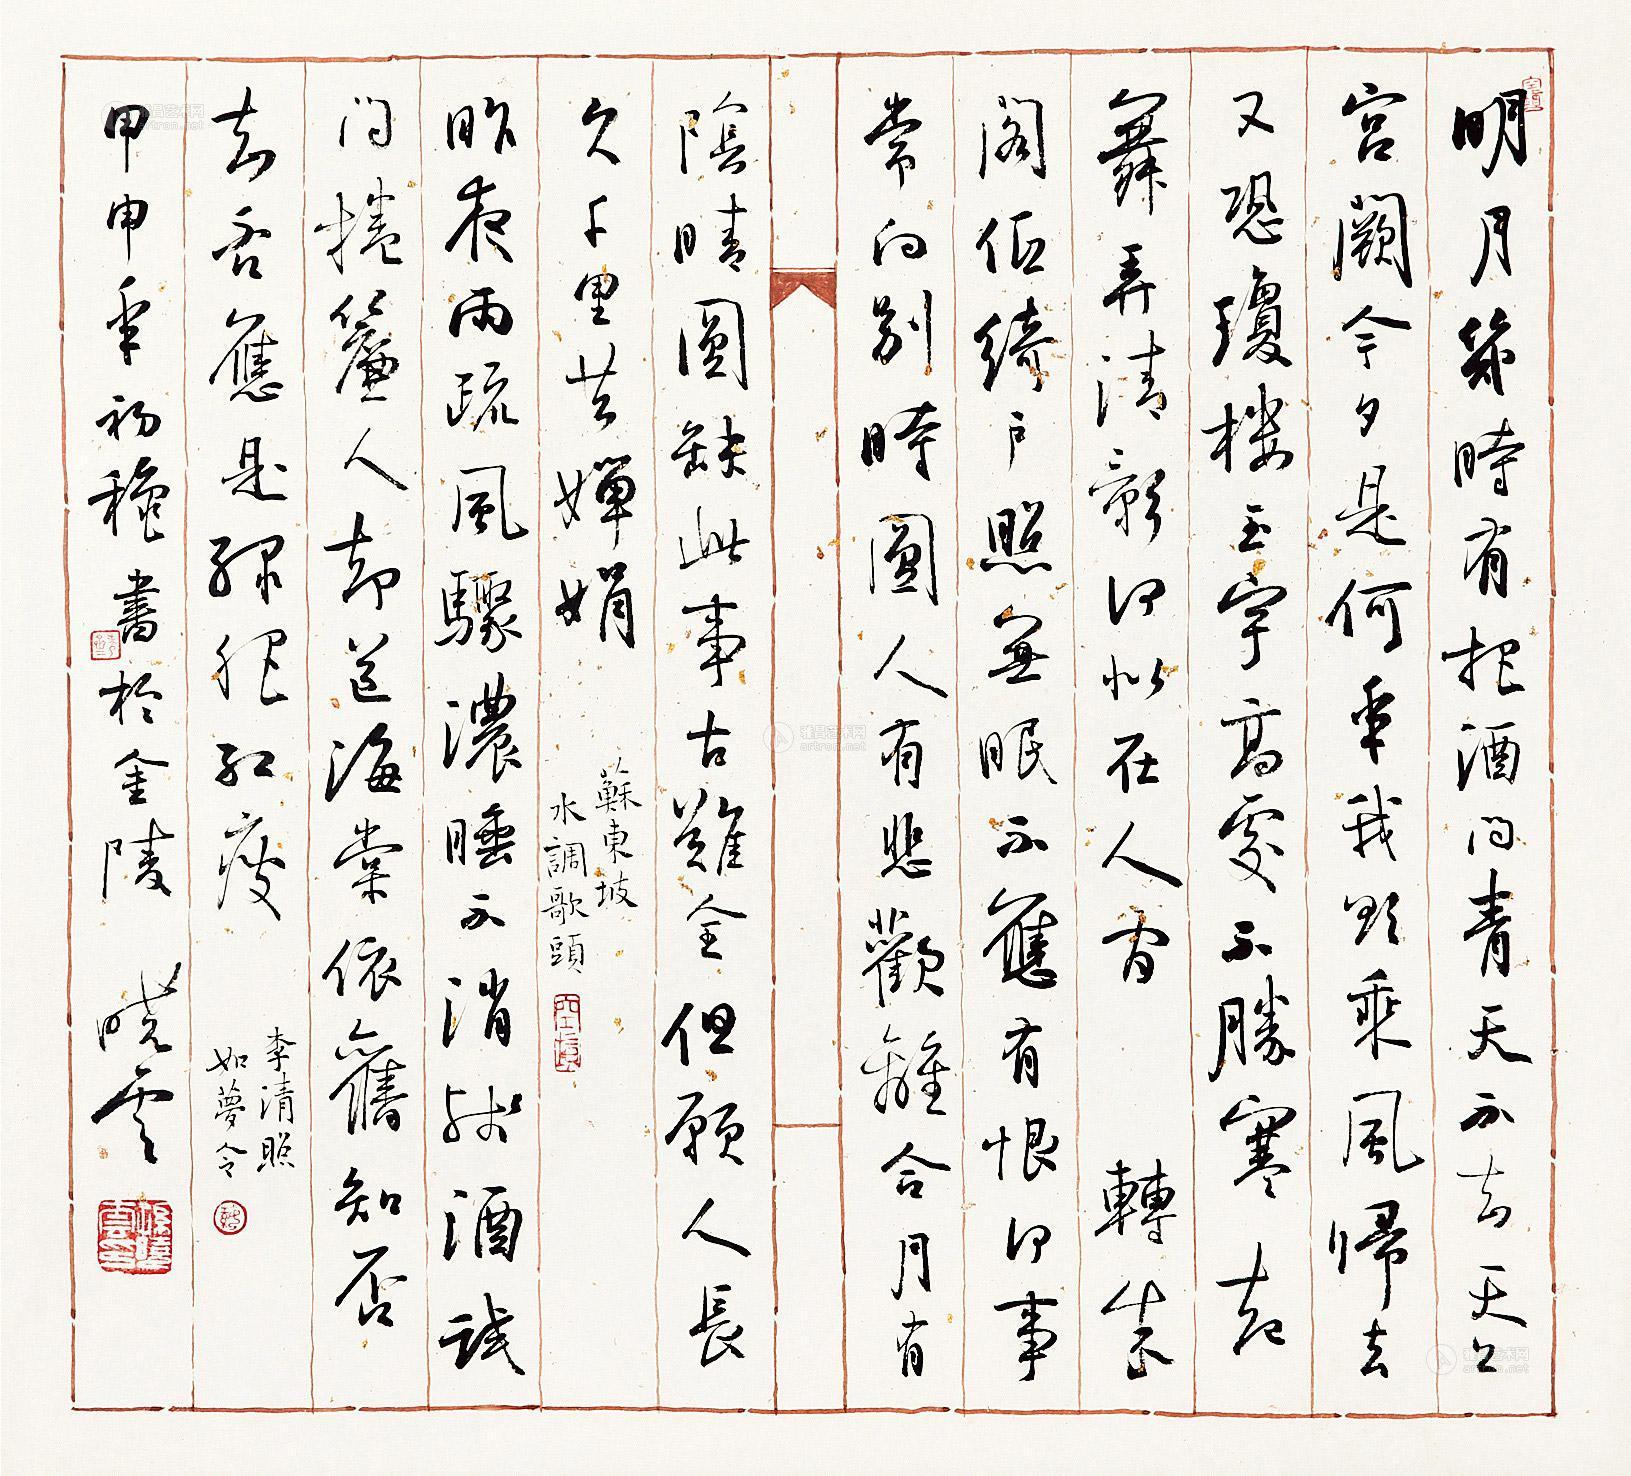 明月幾時有把酒问青天不知天上
宮闕今夕是何年我欲乘風歸去
又恐瓊樓玉宇高處不勝寒起
舞弄清影何似在人间 轉朱
閣低綺户照無眠不應有恨何事
常向别時圓人有悲歡離合月有
陰晴圓缺此事古難全但願人長
久千里共嬋娟
蘇東坡
水調歌頭
昨夜雨疏風驟濃睡不消殘酒試
问捲簾人却道海棠依舊知否
知否應是綠肥紅瘦
李清照
如夢令
甲申年初穐書於金陵 晓雲
雅昌艺术网
artron.net